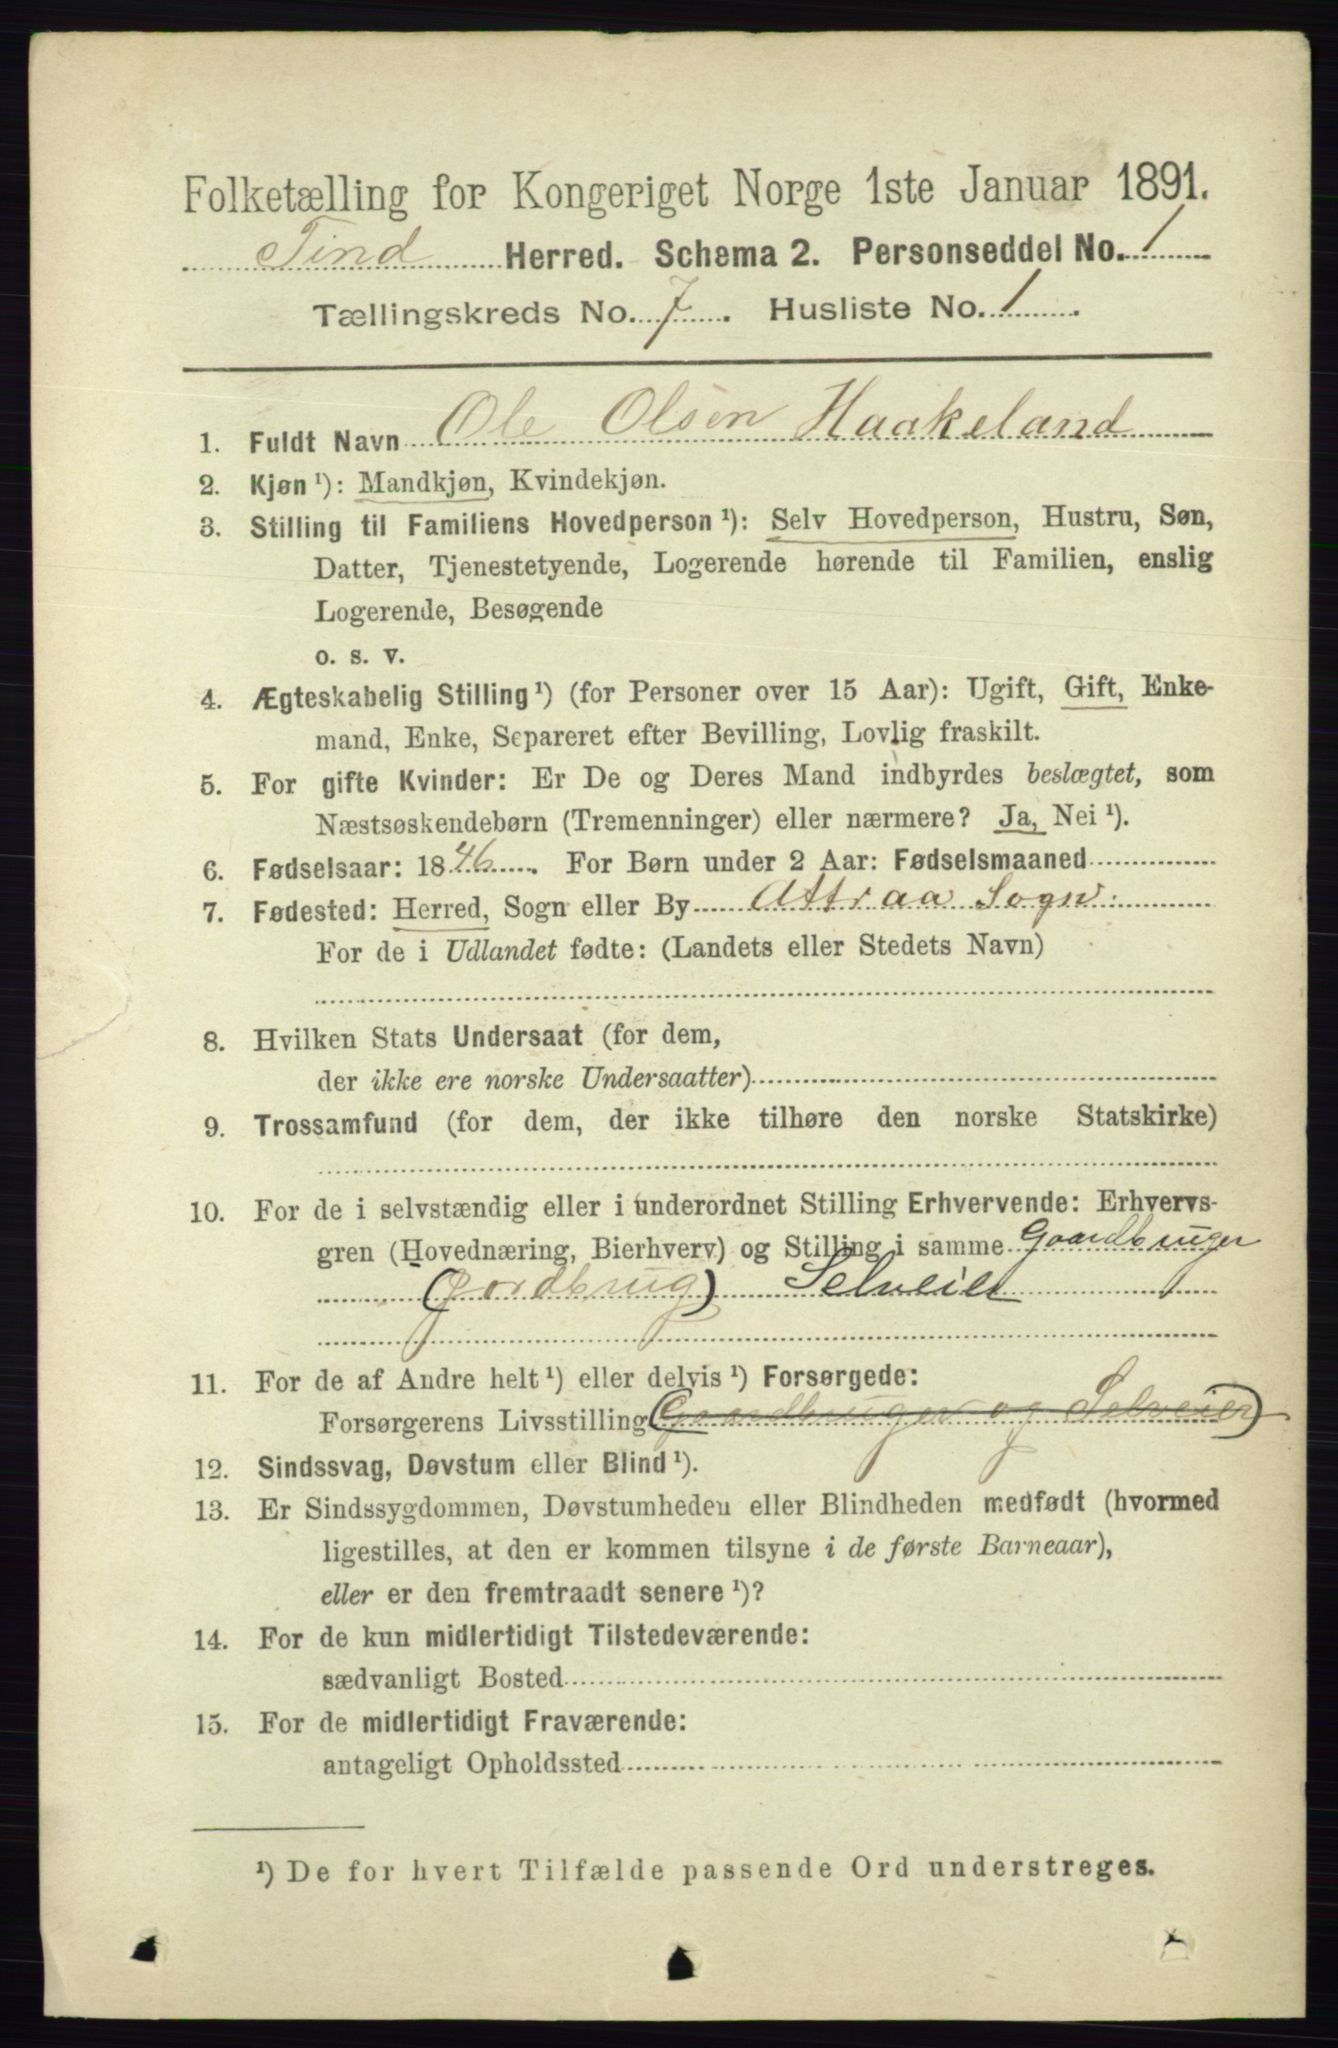 Folketælling for Kongeriget Norge 1ste Januar 1891.
Tind Herred. Schema 2. Personseddel No. 1
Tællingskreds No. 7. Husliste No. 1.
1. Fuldt Navn Ole Olsen Haakeland
2. Kjøn ¹): Mandkjøn, Kvindekjøn.
3. Stilling til Familiens Hovedperson ¹): Selv Hovedperson, Hustru, Søn,
Datter, Tjenestetyende, Logerende hørende til Familien, enslig
Logerende, Besøgende
o. s. v.
4. Ægteskabelig Stilling ¹) (for Personer over 15 Aar): Ugift, Gift, Enke-
mand, Enke, Separeret efter Bevilling, Lovlig fraskilt.
5. For gifte Kvinder: Er De og Deres Mand indbyrdes beslægtet, som
Næstsøskendebørn (Tremenninger) eller nærmere? Ja, Nei ¹).
6. Fødselsaar: 1846. For Børn under 2 Aar: Fødselsmaaned
7. Fødested: Herred, Sogn eller By Attraa Sogn.
For de i Udlandet fødte: (Landets eller Stedets Navn)
8. Hvilken Stats Undersaat (for dem,
der ikke ere norske Undersaatter)
9. Trossamfund (for dem, der ikke tilhøre den norske Statskirke)
10. For de i selvstændig eller i underordnet Stilling Erhvervende: Erhvervs-
gren (Hovednæring, Bierhverv) og Stilling i samme Gaardbruger
(jordbrug) Selveier
11. For de af Andre helt ¹) eller delvis ¹) Forsørgede:
Forsørgerens Livsstilling (Gaardbruger og Selveier)
12. Sindssvag, Døvstum eller Blind ¹).
13. Er Sindssygdommen, Døvstumheden eller Blindheden medfødt (hvormed
ligestilles, at den er kommen tilsyne i de første Barneaar),
eller er den fremtraadt senere ¹)?
14. For de kun midlertidigt Tilstedeværende:
sædvanligt Bosted
15. For de midlertidigt Fraværende:
antageligt Opholdssted
¹) De for hvert Tilfælde passende Ord understreges.